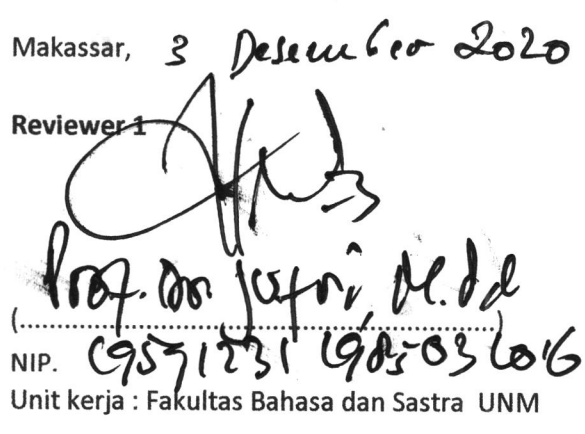 Makassar, 3 Desember 2020
Reviewer 1
Prof. Dr. Jufri, M.Pd
(................................................................)
NIP. 19591231 198503 1016
Unit kerja : Fakultas Bahasa dan Sastra UNM